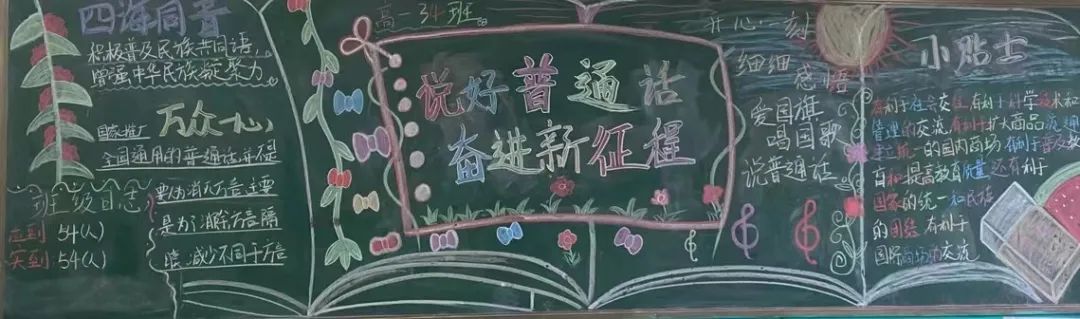 四海同音
积极普及民族共同语,
增强中华民族凝聚力
国家推广 万众一心
全国通用的普通话并不是
要为消灭方言主要
是为消除方言隔
减少不同于方言
班级日志
应到 54(人)
实到:54(人)
高一 34班
说好普通话
奋进新征程
开心一刻
细细感悟
爱国旗
唱国歌
说普通话
小贴士
有利于社会交往,有利于科学技术和
管理的交流,有利于扩大商品流通
建立统一的国内市场 有利于普及教
育和提高教育质量 还有利于
国家的统一和民族
的团结 有利于
国际间的交流